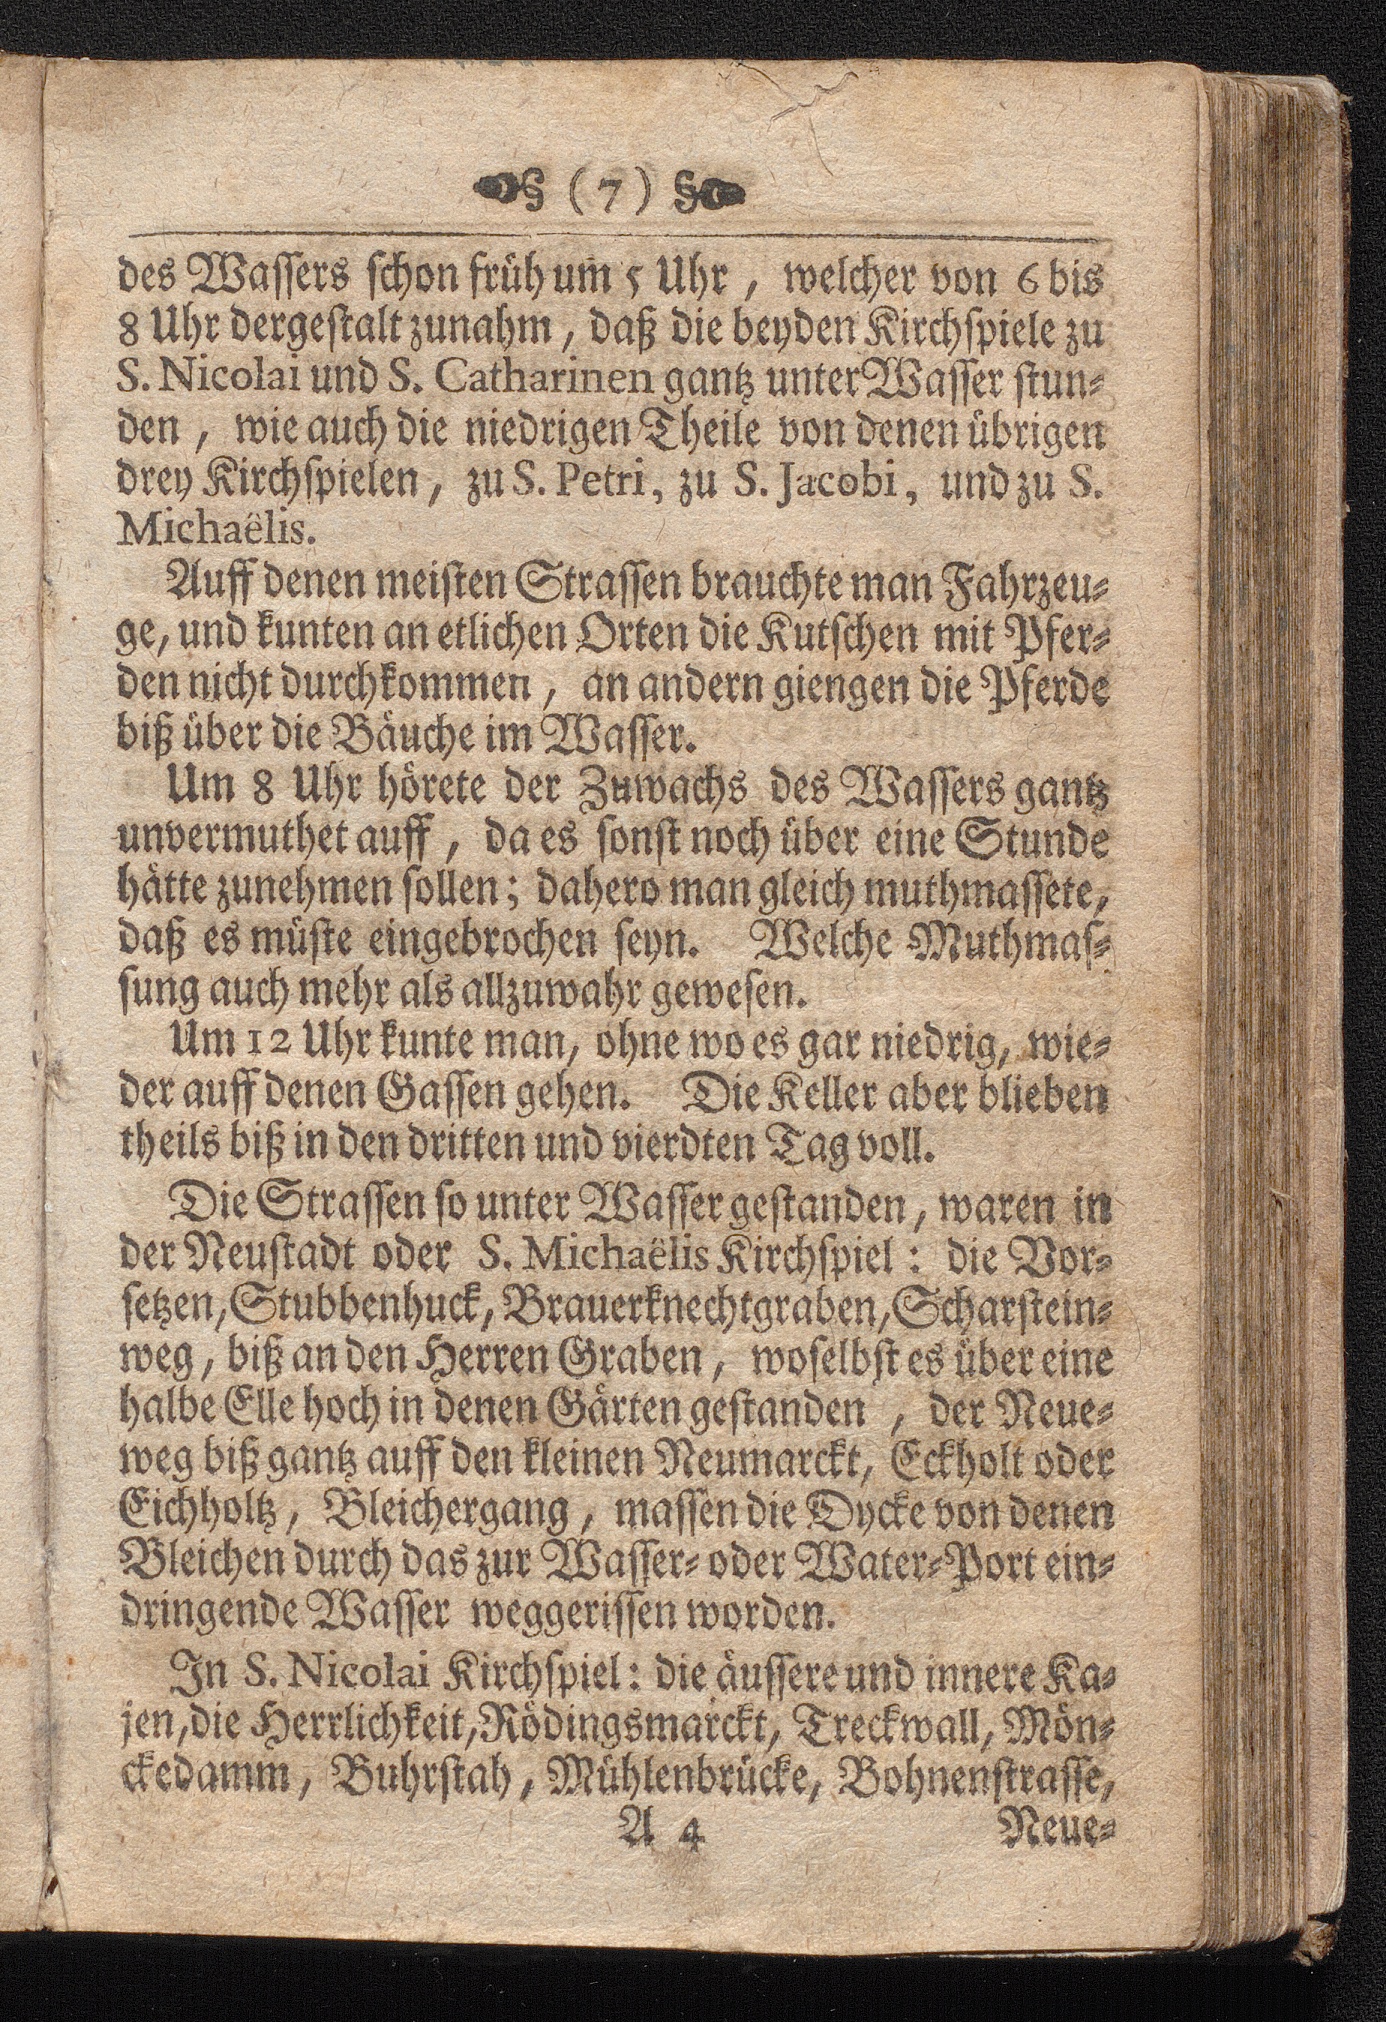 § (7) §
des Wassers schon früh um 5 Uhr, welcher von 6 bis
8 Uhr dergestalt zunahm, daß die beyden Kirchspiele zu
S. Nicolai und S. Catharinen gantz unter Wasser stun-
den, wie auch die niedrigen Theile von denen übrigen
drey Kirchspielen, zu S. Petri, zu S. Jacobi, und zu S.
Michaëlis.
Auff denen meisten Strassen brauchte man Fahrzeu-
ge, und kunten an etlichen Orten die Kutschen mit Pfer-
den nicht durchkommen, an andern giengen die Pferde
biß über die Bäuche im Wasser.
Um 8 Uhr hörete der Zuwachs des Wassers gantz
unvermuthet auff, da es sonst noch über eine Stunde
hätte zunehmen sollen; dahero man gleich muthmassete,
daß es müste eingebrochen seyn. Welche Muthmas-
sung auch mehr als allzuwahr gewesen.
Um 12 Uhr kunte man, ohne wo es gar niedrig, wie-
der auff denen Gassen gehen. Die Keller aber blieben
theils biß in den dritten und vierdten Tag voll.
Die Strassen so unter Wasser gestanden, waren in
der Neustadt oder S. Michaëlis Kirchspiel: die Vor-
setzen, Stubbenhuck, Brauerknechtgraben, Scharstein-
weg, biß an den Herren Graben, woselbst es über eine
halbe Elle hoch in denen Gärten gestanden, der Neue-
weg biß gantz auff den kleinen Neumarckt, Eckholt oder
Eichholtz, Bleichergang, massen die Dycke von denen
Bleichen durch das zur Wasser- oder Water-Port ein-
dringende Wasser weggerissen worden.
In S. Nicolai Kirchspiel: die äussere und innere Ka-
jen, die Herrlichkeit, Rödingsmarckt, Treckwall, Mön-
ckedamm, Buhrstah, Mühlenbrücke, Bohnenstrasse,
A 4 Neue-